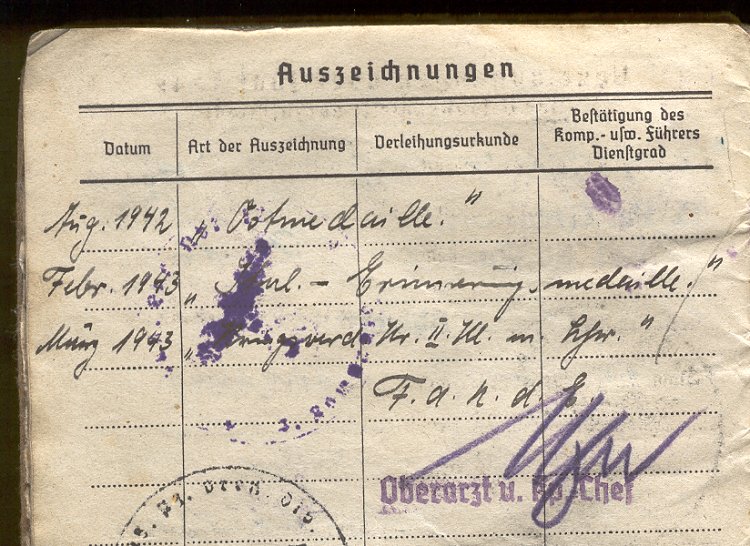 Auszeichnungen
Datum Art der Auszeichnung Verleihungsurkunde Bestätigung des Komp.- usw. Führers Dienstgrad
Aug. 1942 „Ostmedaille."
Febr. 1943 „Ital. - Erinnerungsmedaille."
März 1943 „Kriegsverd. Kr. II. Kl. m. Schw."
F. d. R. d. E.
Oberarzt u. Kp. Chef